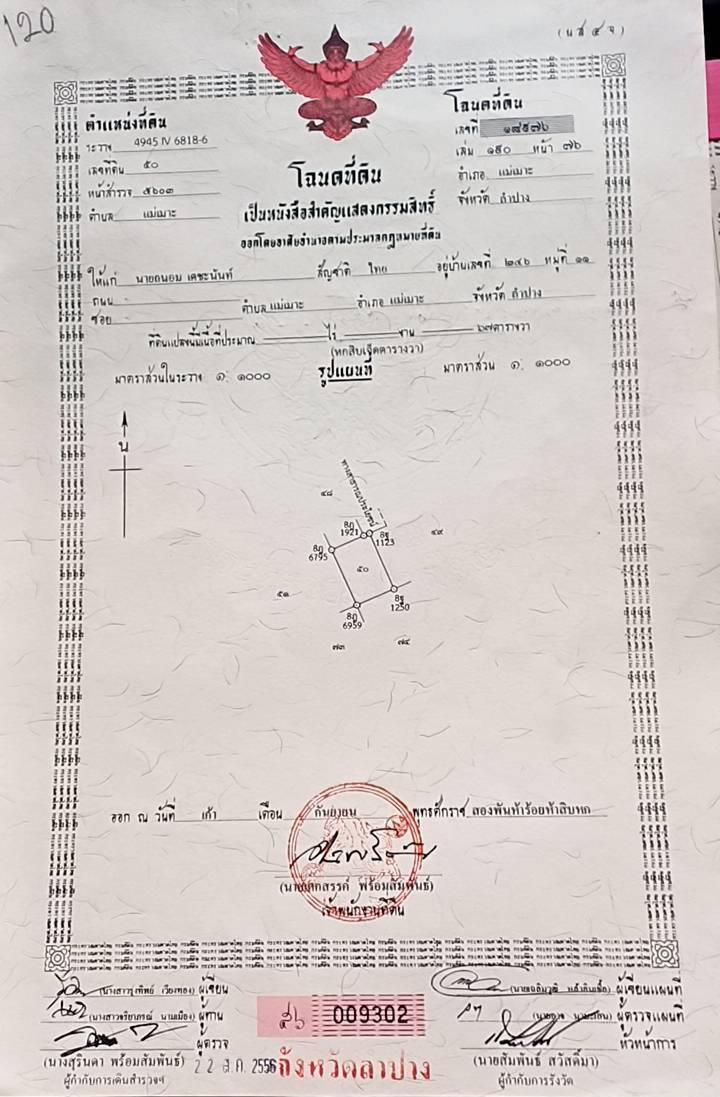 120
(น ส ๔ จ)
ตำแหน่งที่ดิน
ระวาง 4945 IV 6818-6
เลขที่ดิน ๕๐
หน้าสำรวจ ๕๖๐๓
ตำบล แม่เมาะ
โฉนดที่ดิน
เลขที่ ๑๘๕๗๖
เล่ม ๑๘๐ หน้า ๗๖
อำเภอ แม่เมาะ
จังหวัด ลำปาง
โฉนดที่ดิน
เป็นหนังสือสำคัญแสดงกรรมสิทธิ์
ออกโดยอาศัยอำนาจตามประมวลกฎหมายที่ดิน
ให้แก่ นายถนอม เตชะนันท์ สัญชาติ ไทย อยู่บ้านเลขที่ ๒๔๖ หมู่ที่ ๑๑
ถนน
ซอย ตำบล แม่เมาะ อำเภอ แม่เมาะ จังหวัด ลำปาง
ที่ดินแปลงนี้มีเนื้อที่ประมาณ ไร่ งาน ๖๗ ตารางวา
(หกสิบเจ็ดตารางวา)
มาตราส่วนในระวาง ๑: ๑๐๐๐ รูปแผนที่ มาตราส่วน ๑: ๑๐๐๐
น
ทางสาธารณประโยชน์
๔๘
๔๙
8ฎ
1921
8ฐ
1123
8ฎ
6795
๕๐
๕๑
8ฐ
1250
8ฎ
6959
๗๓
๗๔
ออก ณ วันที่ เก้า เดือน กันยายน พุทธศักราช สองพันห้าร้อยห้าสิบหก
พร้อมสัมพันธ์)
เจ้าพนักงานที่ดิน
ผู้เขียน
ผู้ทาน
ผู้ตรวจ
(นางสุรินดา พร้อมสัมพันธ์)
ผู้กำกับการเดินสำรวจฯ
009302
22 ส.ค. 2556
จังหวัดลำปาง
ผู้เขียนแผนที่
ผู้ตรวจแผนที่
หัวหน้าการ
(นายสัมพันธ์ สวัสดิ์มา)
ผู้กำกับการรังวัด